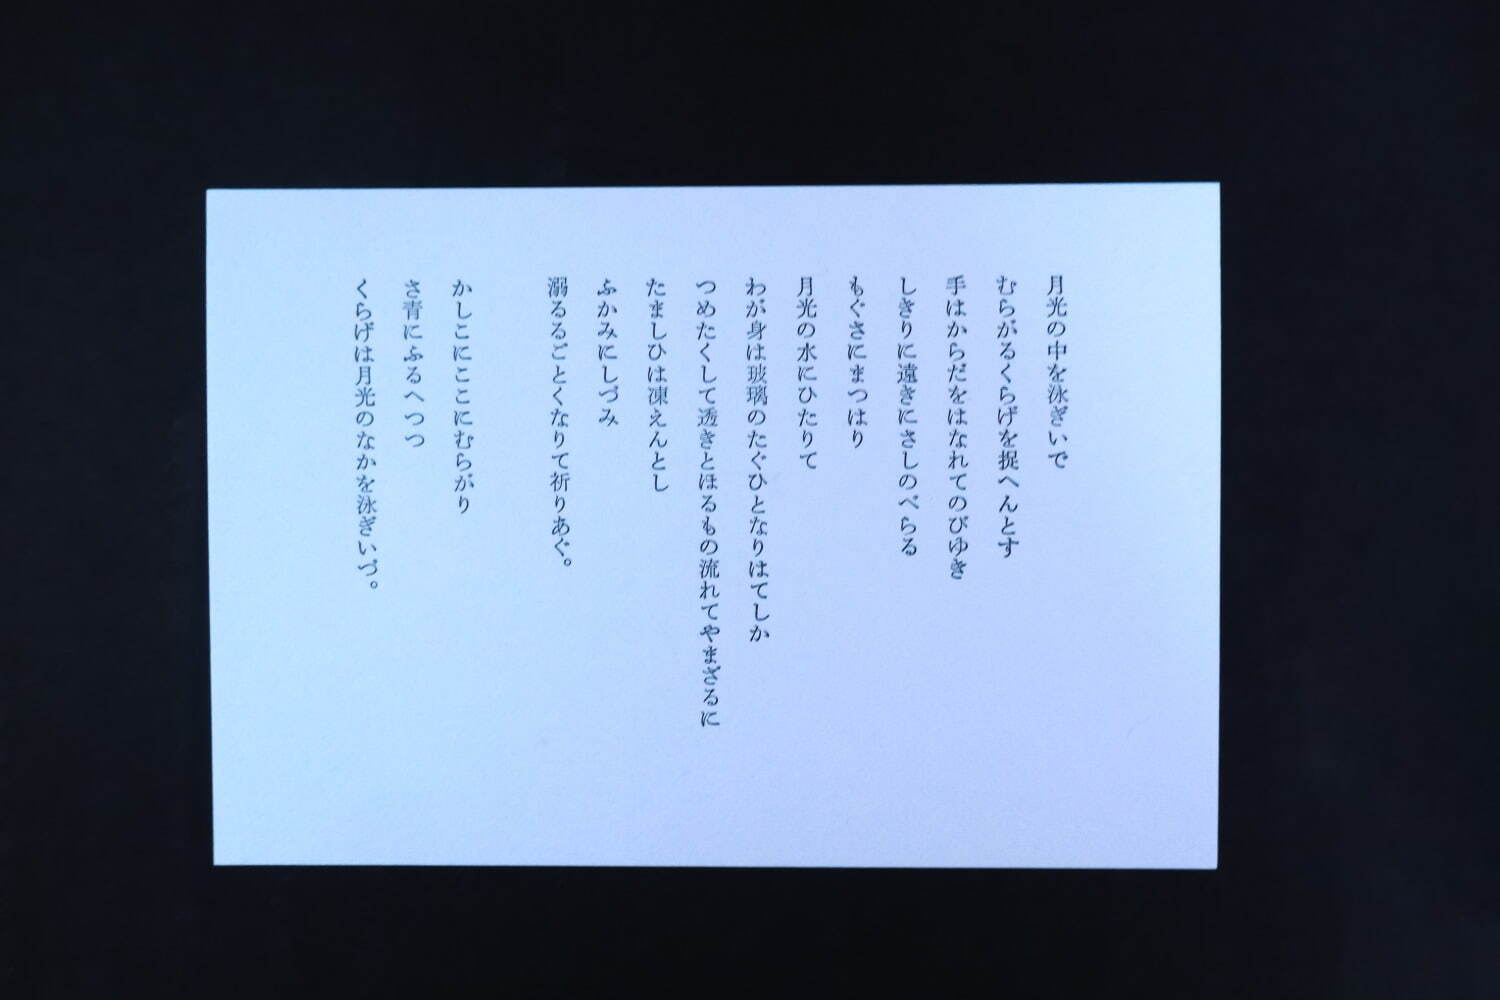 月光の中を泳ぎいで
むらがるくらげを捉へんとす
手はからだをはなれてのびゆき
しきりに遠きにさしのべらる
もぐさにまつはり
月光の水にひたりて
わが身は玻璃のたぐひとなりはてしか
つめたくして透きとほるもの流れてやまざるに
たましひは凍えんとし
ふかみにしづみ
溺るるごとくなりて祈りあぐ。
かしこにここにむらがり
さ青にふるへつつ
くらげは月光のなかを泳ぎいづ。